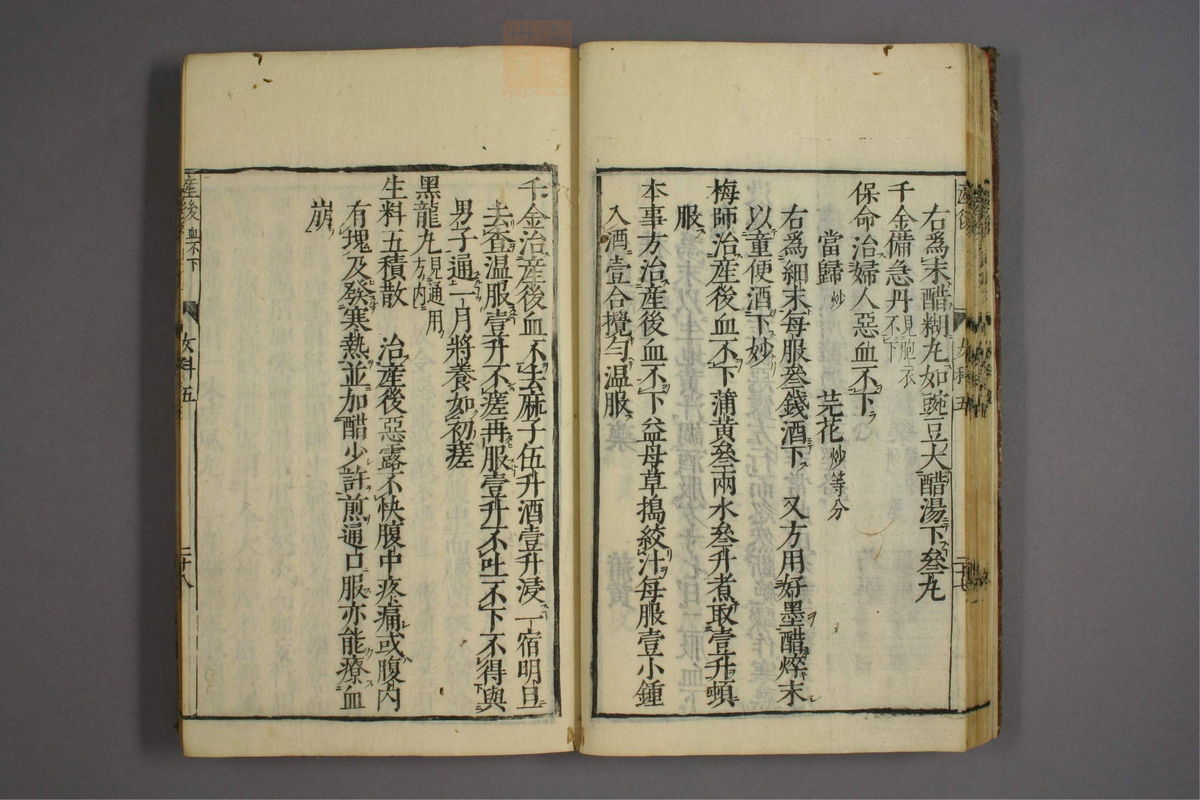 右爲末醋糊丸如豌豆大醋湯下叄丸
千金備急丹見胞衣不下
保命治婦人惡血不下
當歸炒 芫花炒等分
右爲細末每服叄錢酒下 又方用好墨醋焠末
以童便酒下妙
梅師治産後血不下蒲黃叄兩水叄升煮取壹升頓
服
本事方治産後血不下益母草搗絞汁每服壹小鍾
入酒壹合攪勻溫服
産後血不下
女科五
二十八
千金治産後血不去麻子伍升酒壹升浸一宿明旦
去査溫服壹升不瘥再服壹升不吐不下不得與
男子通一月將養如初瘥
黑龍丸見通用方內
生料五積散 治産後惡露不快腹中疼痛或腹內
有塊及發寒熱並加醋少許煎通口服亦能療血
崩